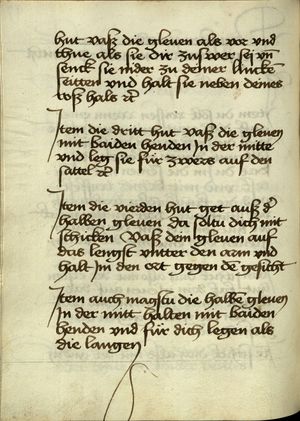 hut vasß die gleuen als vor vnd
thue als sie dir zu swer sei vn̄
senck sie nider zu deiner lincken
seitten vnd halt sie neben deines
roß hals rc̄
Item die dritt hut vasß die gleuen
mit baiden henden In der mitte
vnd leg sie für zwers auf den
sattel rc̄
Item die vierden hut get auß d'
halben gleuen da soltu dich mit
schicken Vasß dein gleuen auf
das lengst vntter den arm und
halt In den ort gegen dē gesicht
Item auch magstu die halbē gleuen
In der mitt halten mit baiden
henden vnd für dich legen als
die langen